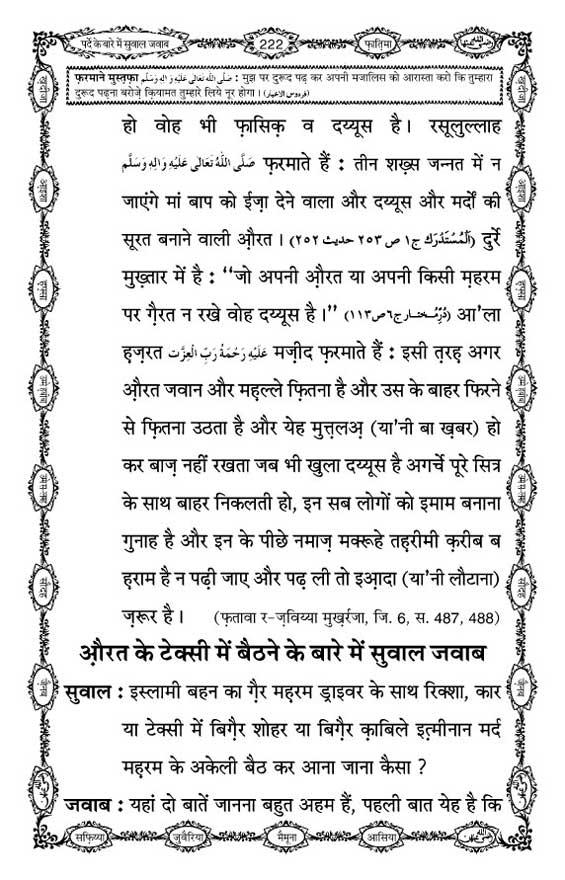 पर्दे के बारे में सुवाल जवाब
222
फ़ातिमा
फ़रमाने मुस्तफ़ा صَلَّى اللهُ تَعَالٰى عَلَيْهِ وَاٰلِهٖ وَسَلَّم : मुझ पर दुरूद पढ़ कर अपनी मजालिस को आरास्ता करो कि तुम्हारा
दुरूद पढ़ना बरोज़े क़ियामत तुम्हारे लिये नूर होगा। (فردوس الاخبار)
हो वोह भी फ़ासिक़ व दय्यूस है। रसूलुल्लाह
صَلَّى اللهُ تَعَالٰى عَلَيْهِ وَاٰلِهٖ وَسَلَّم फ़रमाते हैं : तीन शख़्स जन्नत में न
जाएंगे मां बाप को ईज़ा देने वाला और दय्यूस और मर्दों की
सूरत बनाने वाली औ़रत। (اَلْمُسْتَدْرَك ج١ ص ٢٥٣ حديث ٢٥٢) दुर्रे
मुख़्तार में है : ‘‘जो अपनी औ़रत या अपनी किसी मह़रम
पर ग़ैरत न रखे वोह दय्यूस है।’’ (دُرِّمُختار ج٦ ص١١٣) आ'ला
ह़ज़रत عَلَيْهِ رَحْمَةُ رَبِّ الْعِزَّت मज़ीद फ़रमाते हैं : इसी त़रह़ अगर
औ़रत जवान और मह़ल्ले फ़ितना है और उस के बाहर फिरने
से फ़ितना उठता है और येह मुत्तलअ़ (या'नी बा ख़बर) हो
कर बाज़ नहीं रखता जब भी खुला दय्यूस है अगर्चे पूरे सित्र
के साथ बाहर निकलती हो, इन सब लोगों को इमाम बनाना
गुनाह है और इन के पीछे नमाज़ मक्रूहे तह़रीमी क़रीब ब
ह़राम है न पढ़ी जाए और पढ़ ली तो इआ़दा (या'नी लौटाना)
ज़रूर है। (फ़तावा र-ज़विय्या मुख़र्रजा, जि. 6, स. 487, 488)
औ़रत के टेक्सी में बैठने के बारे में सुवाल जवाब
सुवाल : इस्लामी बहन का ग़ैर मह़रम ड्राइवर के साथ रिक्शा, कार
या टेक्सी में बिग़ैर शोहर या बिग़ैर क़ाबिले इत़्मीनान मर्द
मह़रम के अकेली बैठ कर आना जाना कैसा ?
जवाब : यहां दो बातें जानना बहुत अहम हैं, पहली बात येह है कि
सफ़िय्या
जुवैरिया
मैमूना
आसिया